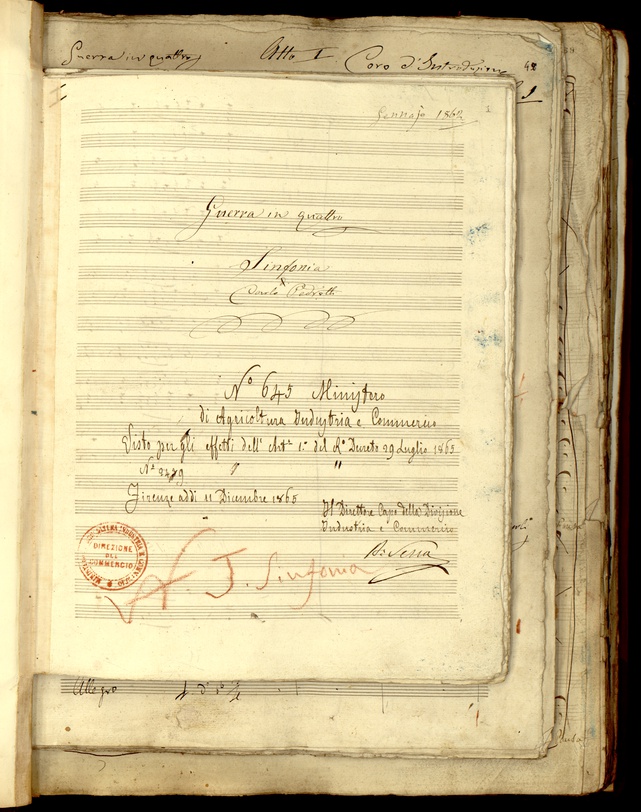 Guerra in quattro Atto I Coro d'Introduzione
Gennajo 1862
1
Guerra in quattro
Sinfonia
Carlo Pedrotti
Nº 645 Ministero
di Agricoltura Industria e Commercio
Visto per gli effetti dell' Artº 1º del Rº Decreto 29 Luglio 1865
Nº 2439 " "
Firenze addi 11 Dicembre 1865
Il Direttore Capo della Divisione
Industria e Commercio
Serra
DIREZIONE
DEL
COMMERCIO
J. Sinfonia
Allegro